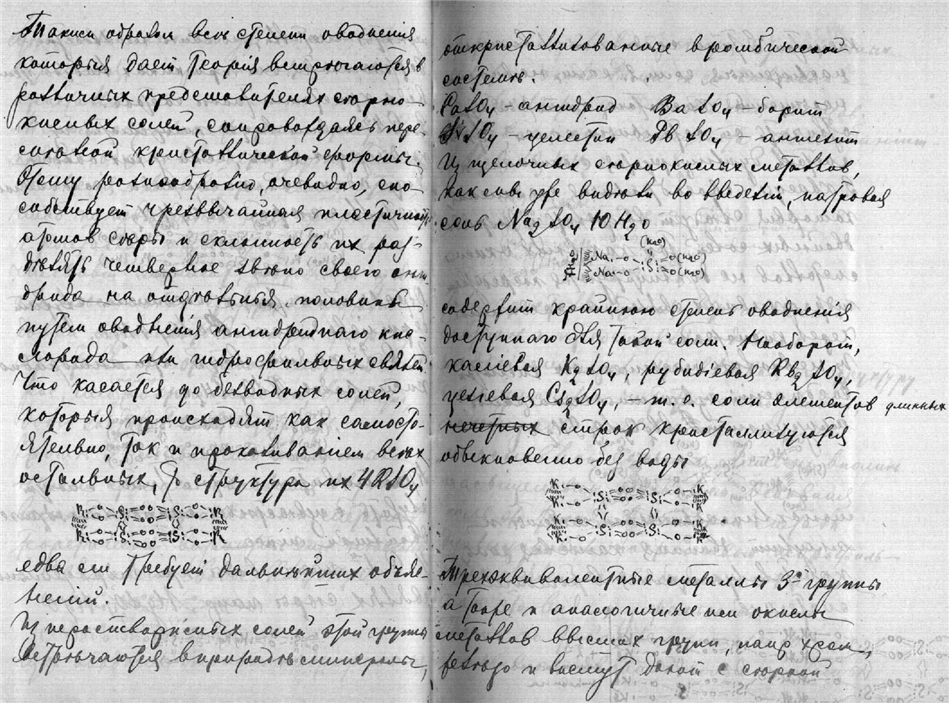 Такимъ образом все степени оводненія
которыя дает теорія встрѣчаются в
различных представителях сѣрно-
кислых солей, сопровождаясь пере-
становкой кристаллической формы.
Этому разнообразію, очевидно, спо-
собствует чрезвычайная пластичность
атомов сѣры и склонность их раз-
дѣлять четвертое звено своего анги
дрида на отдѣльныя половины
путем оводненія ангидриднаго кис-
лорода или гидрофильных связей.
Что касается до безводных солей,
которыя происходят как самосто-
ятельно, так и прокаливанием всех
остальных, то структура их 4RSO4
едва ли требует дальнѣйших объяс-
неній.
Из нерастворимых солей этой группы
встрѣчаются в природѣ минералы,
откристаллизованные в ромбической
системѣ:
CaSO4 – ангидрид BaSO4 – барит
SrSO4 – целестин PbSO4 – англезит
Из щелочных сѣрнокислых металлов,
как мы уже видѣли во введеніи, натровая
соль Na2SO4 10H2O
содержит крайнюю степень оводненія
доступнаго для такой соли. Наоборот,
каліевая K2SO4, рубидіевая Rb2SO4,
цезіевая Cs2SO4, – т.е. соли элементов длинных
нечетных строк кристаллизуются
обыкновенно без воды
Трехэквивалентные металлы 3й группы
а также и аналогичные им окислы
металлов высших групп, напр. хром,
желѣзо и висмут дают с сѣрной